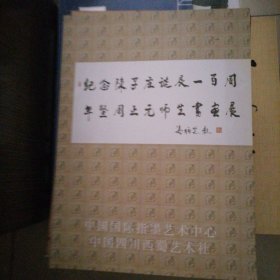 纪念陈子庄诞辰一百周
年暨周正元师生书画展
中国国际指墨艺术中心
中国四川西蜀艺术社